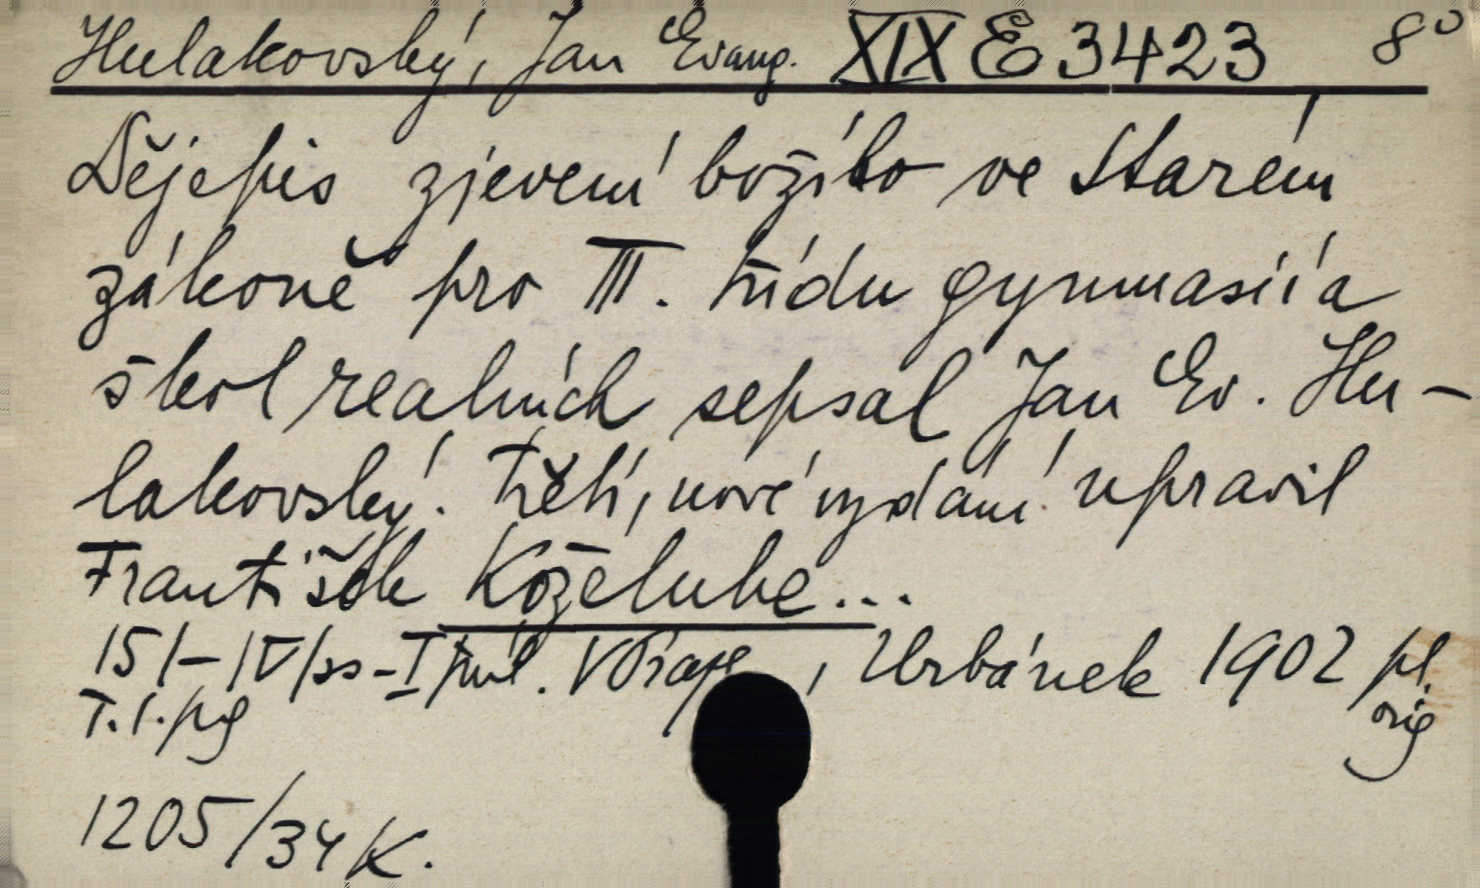 Hulakovský, Jan Evang. XIX E 3423 8°
Dějepis zjevení božího ve Starém
zákoně pro III. třídu gymnasií a
škol realních sepsal Jan Ev. Hu-
lakovský. Třetí, nové vydání upravil
František Koželuha...
151-IV/ss-I příl. V Praze, Urbánek 1902 pl.
T.1.pg orig
1205/34 K.